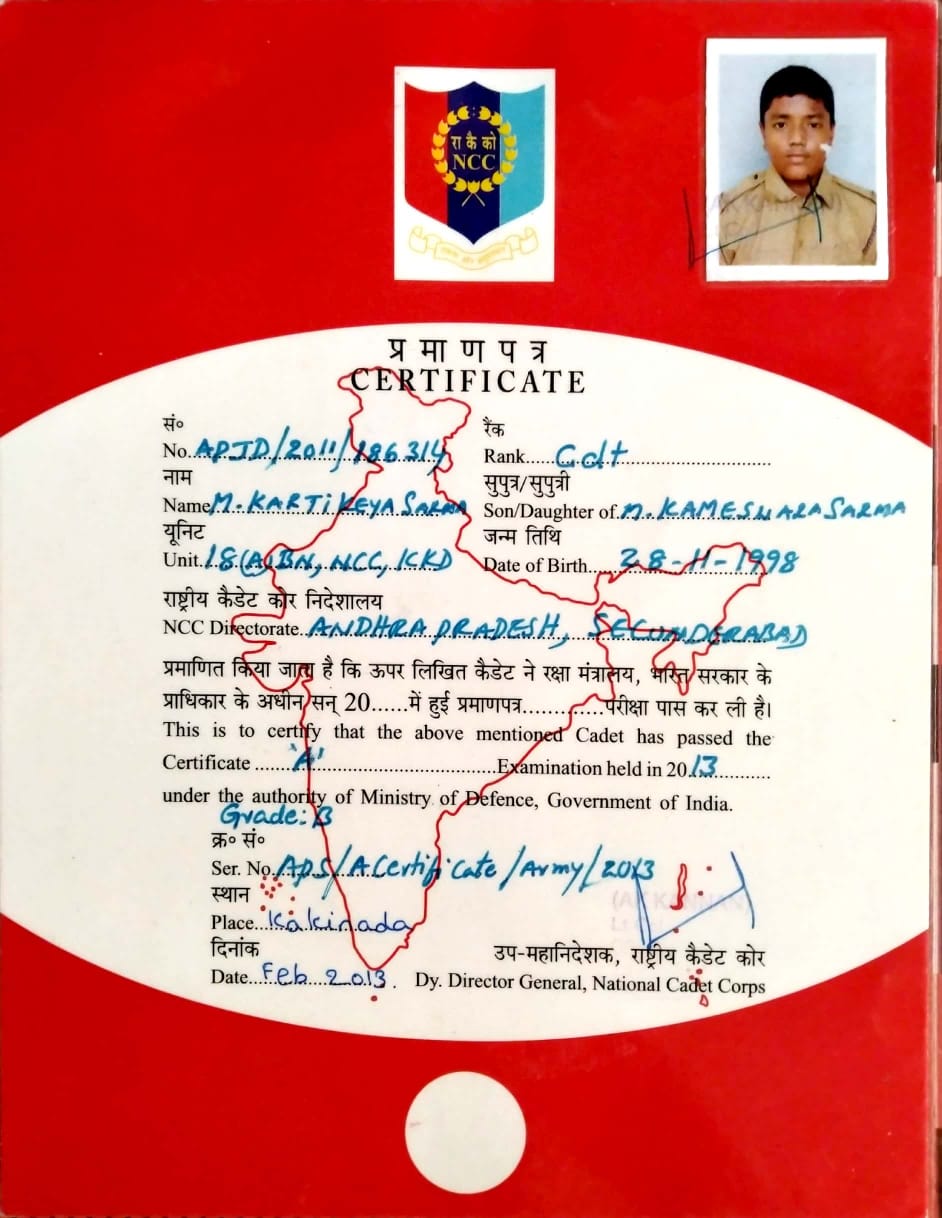 रा कै को
NCC
प्र मा ण प त्र
CERTIFICATE
सं०
No. APJD/2011/186314
रैंक
Rank...... Cdt
नाम
Name M. KARTIKEYA SARMA
सुपुत्र/सुपुत्री
Son/Daughter of M. KAMESWARA SARMA
यूनिट
Unit. 18(A)BN, NCC, KKD
जन्म तिथि
Date of Birth...... 28-11-1998
राष्ट्रीय कैडेट कोर निदेशालय
NCC Directorate. ANDHRA PRADESH, SECUNDERABAD
प्रमाणित किया जाता है कि ऊपर लिखित कैडेट ने रक्षा मंत्रालय, भारत सरकार के
प्राधिकार के अधीन सन् 20......में हुई प्रमाणपत्र.............परीक्षा पास कर ली है।
This is to certify that the above mentioned Cadet has passed the
Certificate ...... 'A' ......Examination held in 20 13
under the authority of Ministry of Defence, Government of India.
Grade: B
क्र० सं०
Ser. No. APS/A Certificate/Army/2013
स्थान
Place... Kakinada
(A K KANNAN)
दिनांक
Date. Feb 2013.
उप-महानिदेशक, राष्ट्रीय कैडेट कोर
Dy. Director General, National Cadet Corps